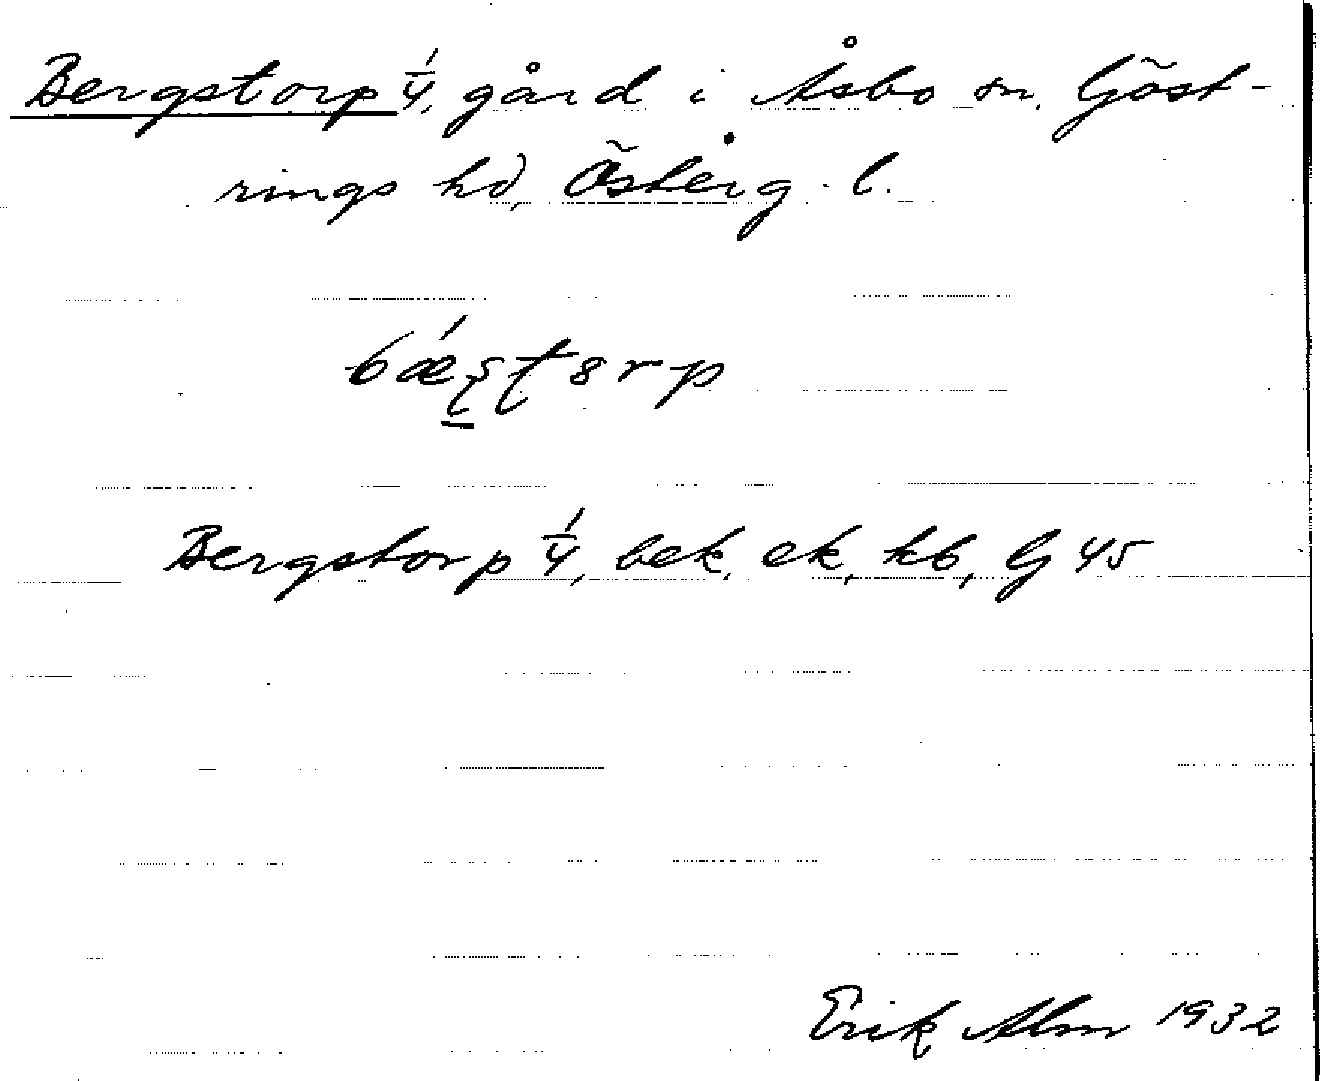 Bergstorp 1/4, gård i Åsbo sn, Göst-
rings hd, Österg. l.
bǽʂʈ8rp
Bergstorp 1/4, bek, ek, kb, G 45
Erik Alm 1932